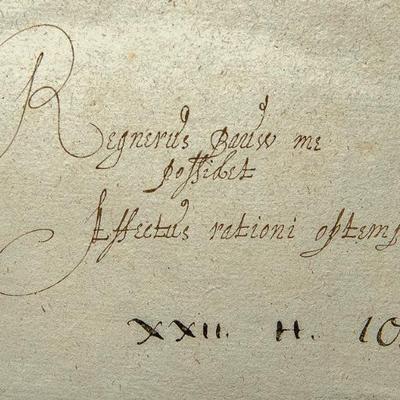 Regnerus Bauw me
possidet
Affectus rationi optemp
XXII. H. 10